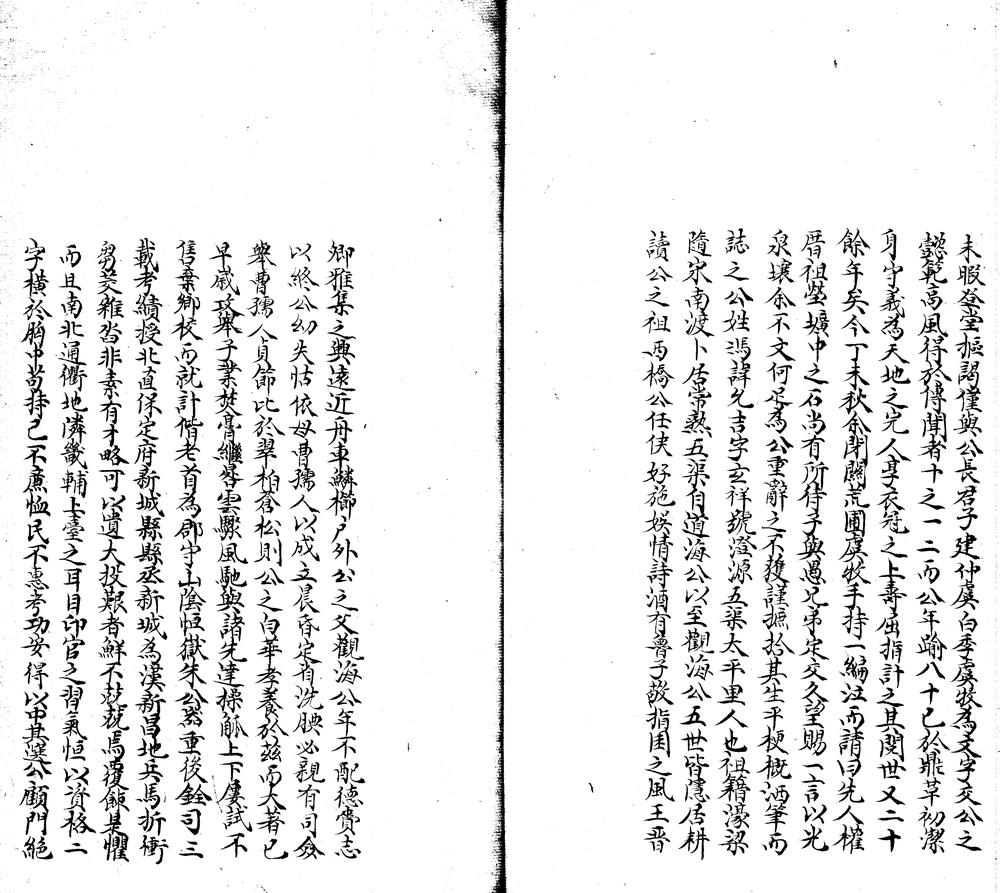 未暇登堂摳謁僅與公長君子建仲虞白季虞牧為文字交公之
懿範高風得於傳聞者十之一二而公年踰八十已於鼎革初潔
身守義為天地之完人享衣冠之上壽屈指計之其閱世又二十
餘年矣今丁未秋余閉關荒圃虞牧手持一編泣而請曰先人權
厝祖塋壙中之石尚有所待子與愚兄弟定交久望賜一言以光
泉壤余不文何足為公重辭之不獲謹摭拾其生平梗概洒筆而
誌之公姓馮諱允吉字玄祥號澄源五渠太平里人也祖籍濠梁
隨宋南渡卜居常熟五渠自道海公以至觀海公五世皆隱居耕
讀公之祖西橋公任俠好施娛情詩酒有魯子敬指囷之風王晋
卿雅集之興遠近舟車鱗櫛戶外公之父觀海公年不配德賫志
以終公幼失怙依母曹孺人以成立晨昏定省洗腆必親有司僉
舉曹孺人貞節比於翠柏蒼松則公之白華孝養於茲而大著已
早歲攻舉子業焚膏繼晷雲驟風馳與諸先達操觚上下屢試不
售棄鄉校而就計偕老首為郡守山陰恒嶽朱公器重後銓司三
載考績授北直保定府新城縣縣丞新城為漢新昌地兵馬折衝
芻茭雜沓非素有才略可以遺大投艱者鮮不兢兢焉覆餗是懼
而且南北通衢地隣畿輔上臺之耳目印官之習氣恒以資格二
字橫於胸中苟持己不廉恤民不惠考功安得以中其選公顧門絕